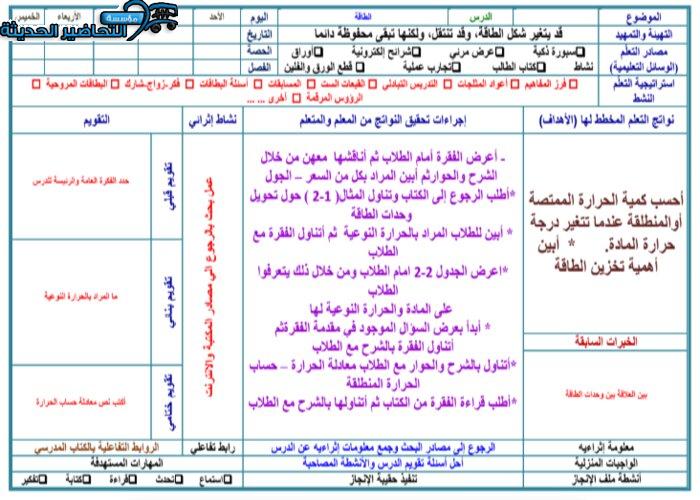 مؤسسة
التحاضير الحديثة
الموضوع الدرس الطاقة اليوم الأحد الأربعاء الخميس
التهيئة والتمهيد قد يتغير شكل الطاقة، وقد تنتقل، ولكنها تبقى محفوظة دائما التاريخ
مصادر التعلم سبورة ذكية عرض مرئي شرائح إلكترونية أوراق الحصة
(الوسائل التعليمية) نشاط كتاب الطالب تجارب عملية قطع الورق والفلين الفصل
استراتيجية التعلم النشط فرز المفاهيم أعواد المثلجات التدريس التبادلي القبعات الست المسابقات أسئلة البطاقات فكر-زواج-شارك البطاقات المروحية
الرؤوس المرقمة أخرى ... ...
نواتج التعلم المخطط لها (الأهداف) إجراءات تحقيق النواتج من المعلم والمتعلم نشاط إثرائي التقويم
أحسب كمية الحرارة الممتصة
أوالمنطلقة عندما تتغير درجة
حرارة المادة. * أبين
أهمية تخزين الطاقة
الخبرات السابقة
بين العلاقة بين وحدات الطاقة
- أعرض الفقرة أمام الطلاب ثم أناقشها معهن من خلال
الشرح والحوارثم أبين المراد بكل من السعر – الجول
*أطلب الرجوع إلى الكتاب وتناول المثال( 1-2 ) حول تحويل
وحدات الطاقة
* أبين للطلاب المراد بالحرارة النوعية ثم أتناول الفقرة مع
الطلاب
*اعرض الجدول 2-2 امام الطلاب ومن خلال ذلك يتعرفوا
على المادة والحرارة النوعية لها
* أبدأ بعرض السؤال الموجود في مقدمة الفقرةثم
أتناول الفقرة بالشرح مع الطلاب
*أتناول بالشرح والحوار مع الطلاب معادلة الحرارة – حساب
الحرارة المنطلقة
*أطلب قراءة الفقرة من الكتاب ثم أتناولها بالشرح مع الطلاب
عمل بحث بالرجوع الى مصادر المكتبة والانترنت
تقويم قبلي
حدد الفكرة العامة والرئيسة للدرس
تقويم بنائي
ما المراد بالحرارة النوعية
تقويم ختامي
أكتب نص معادلة حساب الحرارة
معلومة إثراءيه الرجوع إلى مصادر البحث وجمع معلومات إثراءيه عن الدرس رابط تفاعلي الروابط التفاعلية بالكتاب المدرسي
الواجبات المنزلية أحل أسئلة تقويم الدرس والأنشطة المصاحبة المهارات المستهدفة
أنشطة ملف الإنجاز تنفيذ حقيبة الإنجاز استماع تحدث قراءة كتابة تفكير